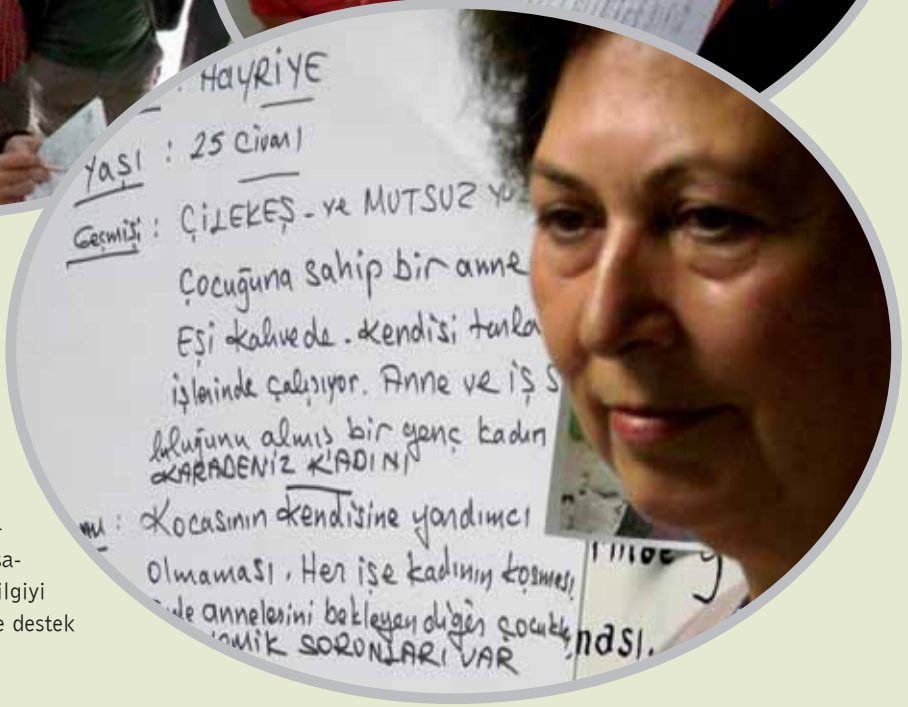 : HAYRİYE
Yaşı : 25 Civarı
Geçmişi : ÇİLEKEŞ - ve MUTSUZ
Çocuğuna sahip bir anne
Eşi kahvede. kendisi tarla
işlerinde çalışıyor. Anne ve iş s
luluğunu almış bir genç kadın
KARADENİZ KADINI
: Kocasının kendisine yardımcı
olmaması. Her işe kadının koşması
annelerini bekleyen diğer çocukla
SORUNLARI VAR
nası.
sa-
ilgiyi
e destek